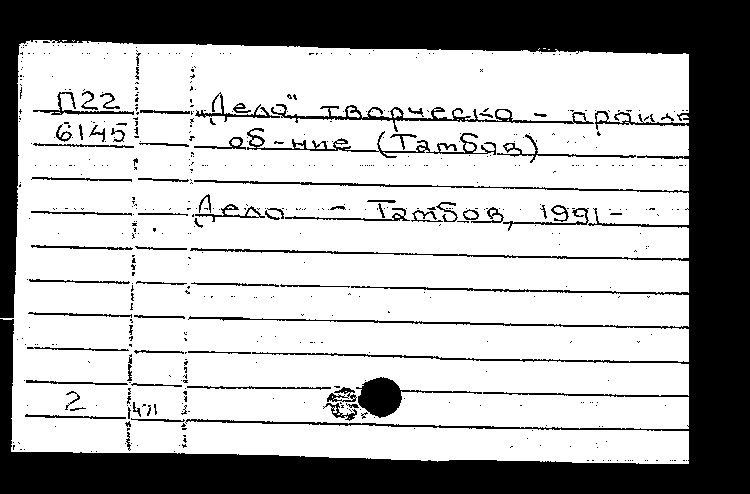 П22
6145
„Дело", творческо-произв
об-ние (Тамбов)
Дело - Тамбов, 1991-
2
471